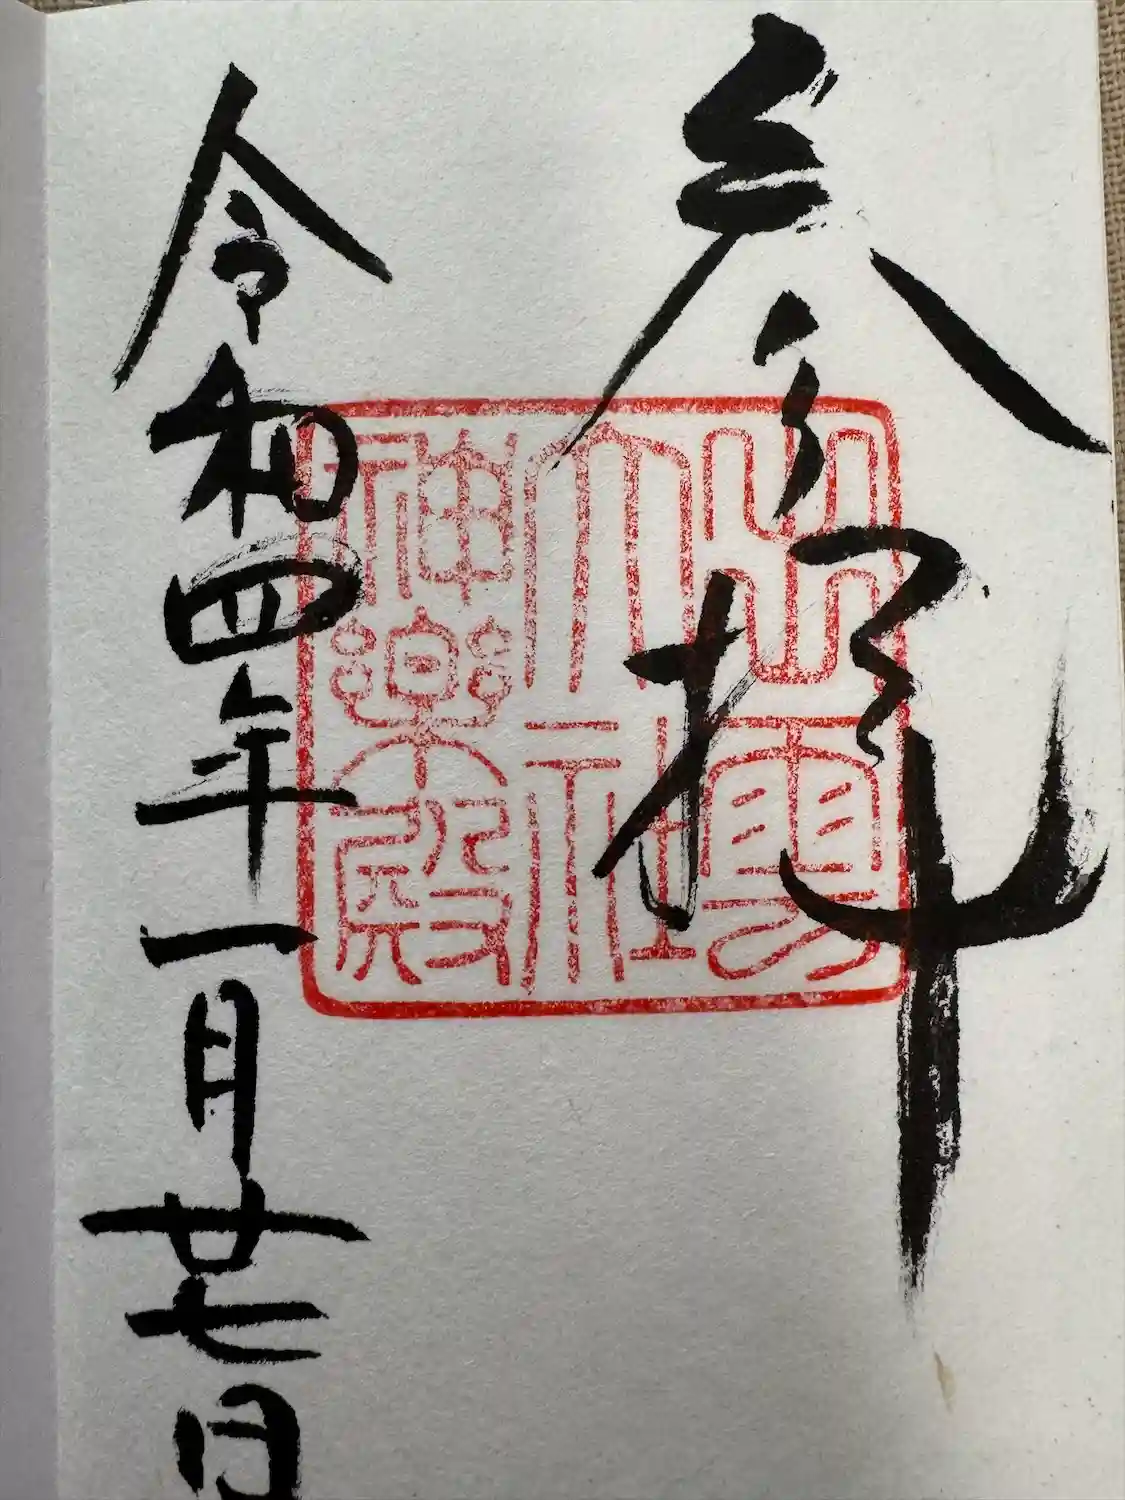 参拝
出雲
大社
神樂殿
令和四年一月廿七日